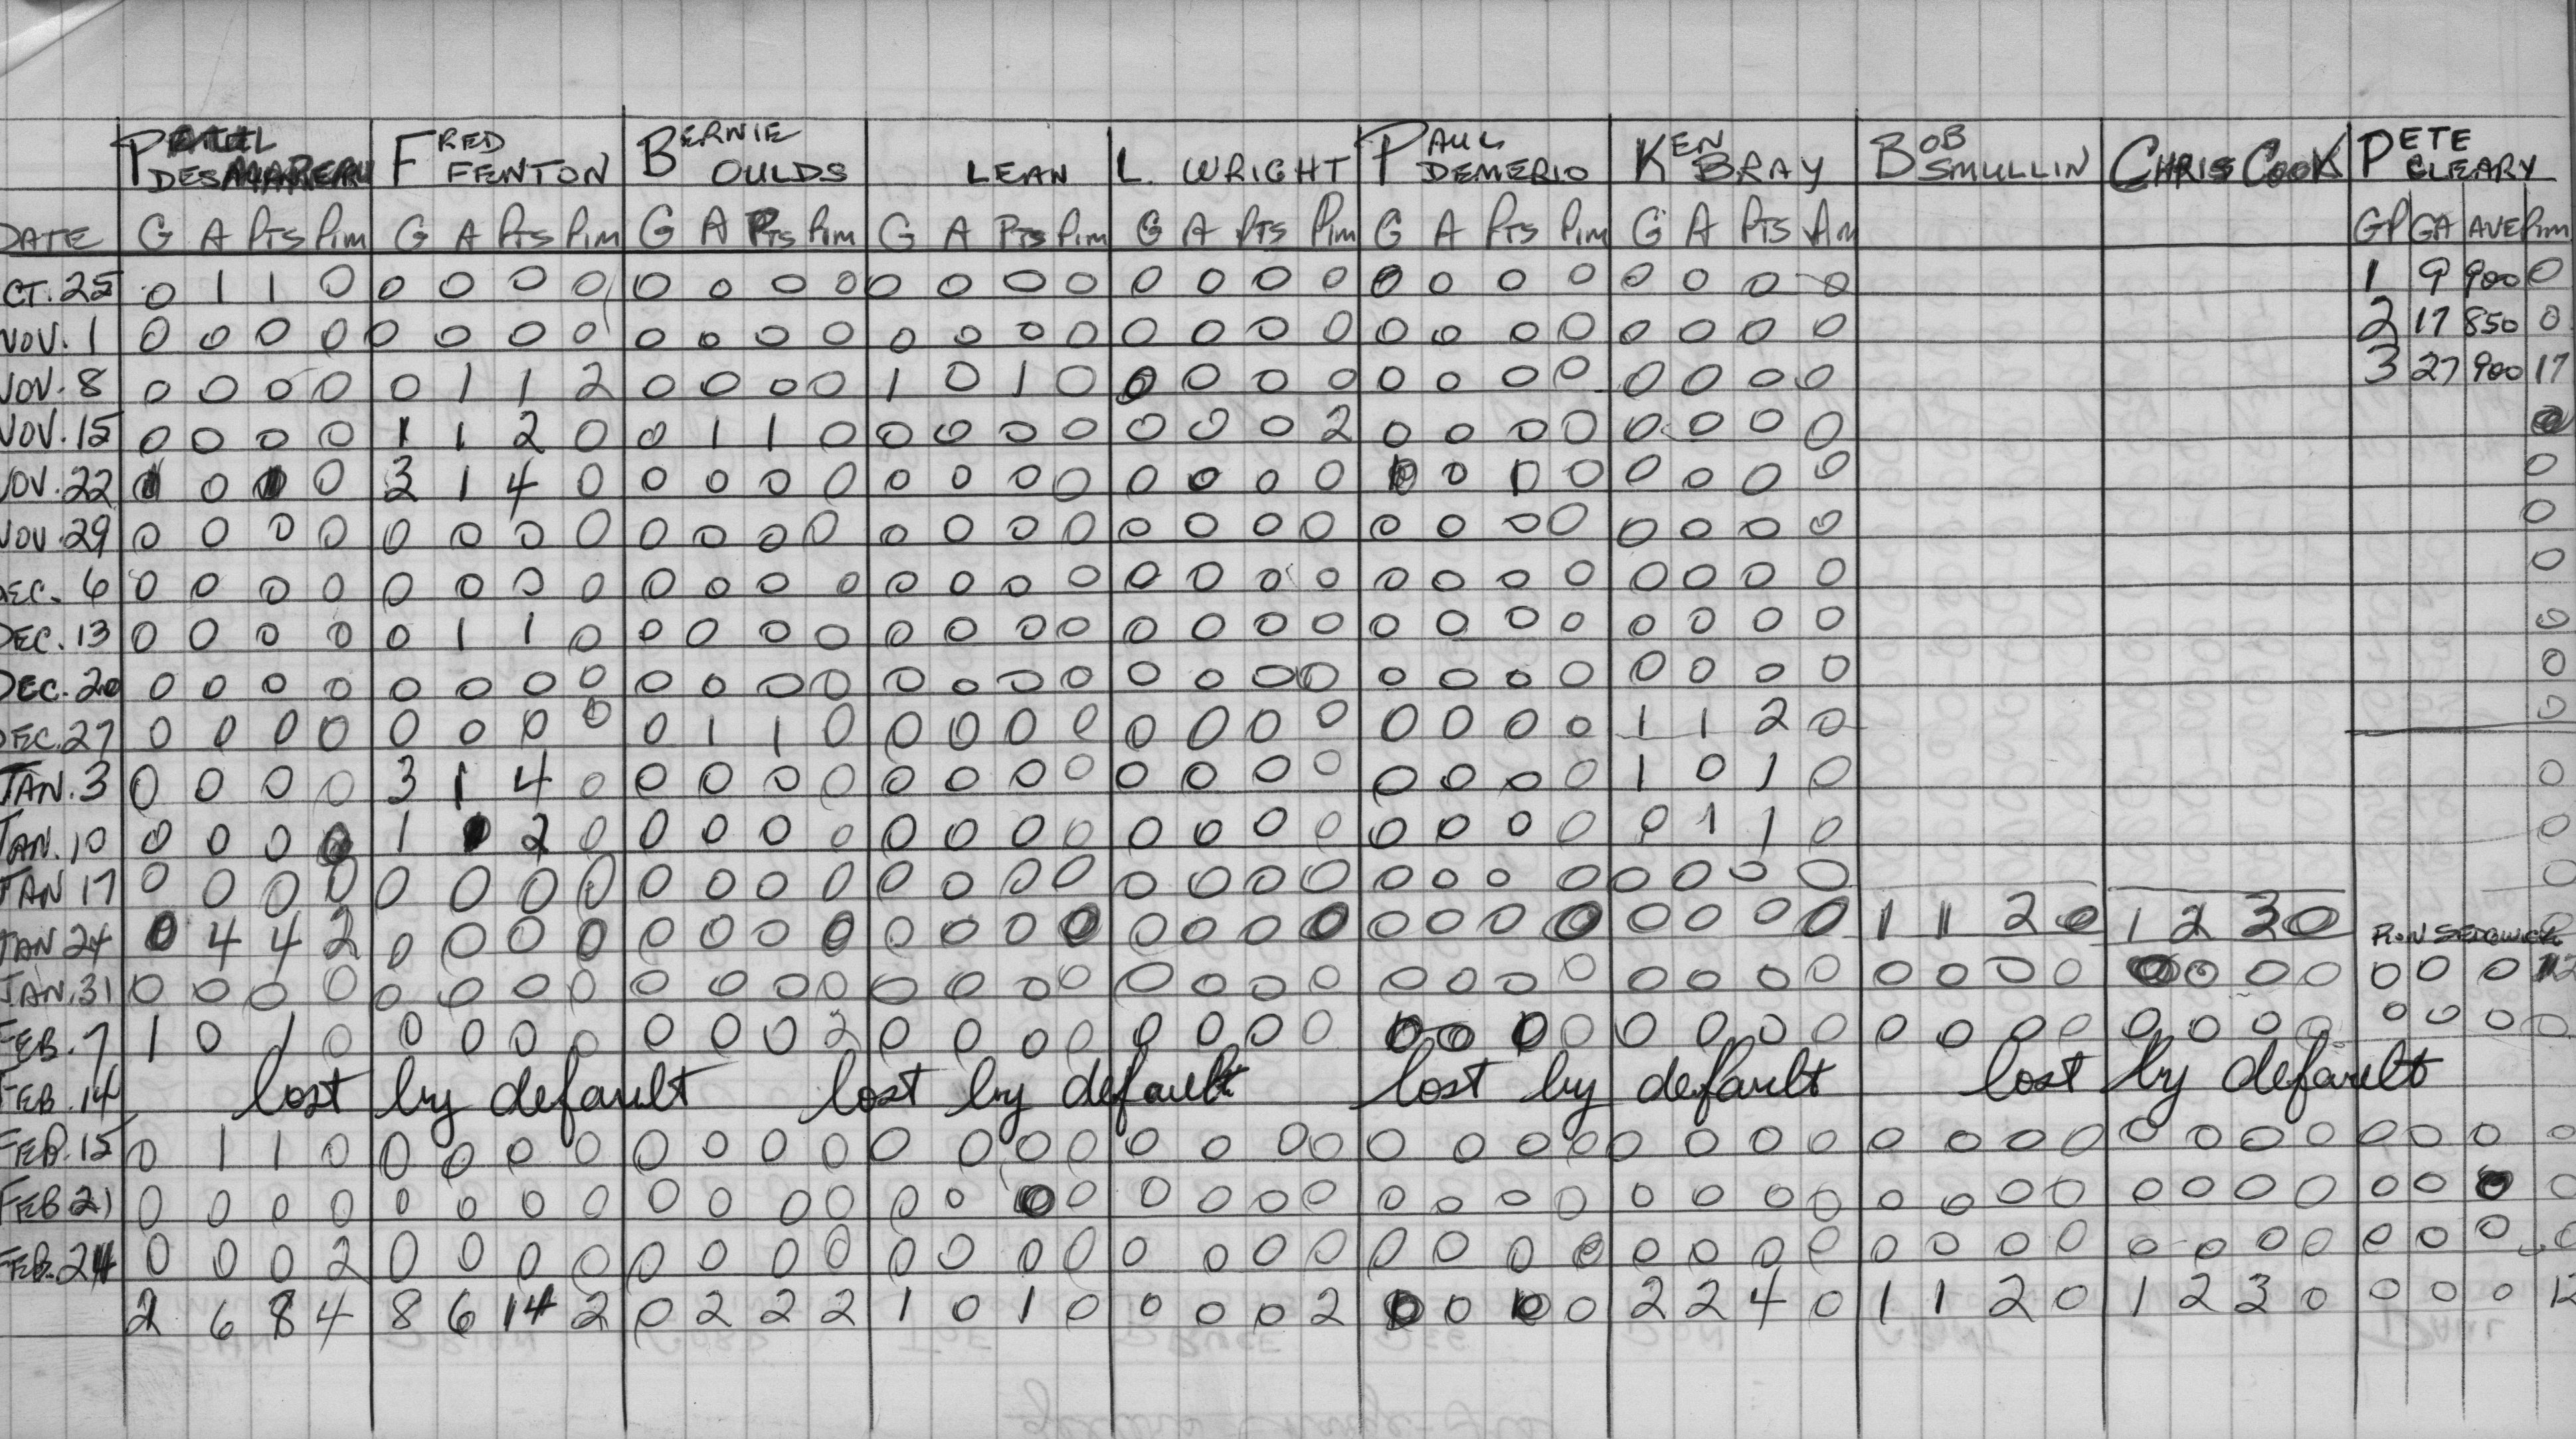 PAUL DESMAREAU FRED FENTON BERNIE OULDS LEAN L. WRIGHT PAUL DEMERIO KEN BRAY BOB SMULLIN CHRIS COOK PETE CLEARY
DATE G A Pts Pim G A Pts Pim G A Pts Pim G A Pts Pim G A Pts Pim G A Pts Pim G A Pts Pim GP GA AVE Pim
CT. 25 0 1 1 0 0 0 0 0 0 0 0 0 0 0 0 0 0 0 0 0 0 0 0 0 0 0 0 0 1 9 900 0
NOV. 1 0 0 0 0 0 0 0 0 0 0 0 0 0 0 0 0 0 0 0 0 0 0 0 0 0 0 0 0 2 17 850 0
NOV. 8 0 0 0 0 0 1 1 2 0 0 0 0 1 0 1 0 0 0 0 0 0 0 0 0 0 0 0 0 3 27 900 17
NOV. 15 0 0 0 0 1 1 2 0 0 1 1 0 0 0 0 0 0 0 0 2 0 0 0 0 0 0 0 0
NOV. 22 1 0 1 0 3 1 4 0 0 0 0 0 0 0 0 0 0 0 0 0 0 0 0 0 0 0 0
NOV. 29 0 0 0 0 0 0 0 0 0 0 0 0 0 0 0 0 0 0 0 0 0 0 0 0 0 0 0 0 0
DEC. 6 0 0 0 0 0 0 0 0 0 0 0 0 0 0 0 0 0 0 0 0 0 0 0 0 0 0 0 0 0
DEC. 13 0 0 0 0 0 1 1 0 0 0 0 0 0 0 0 0 0 0 0 0 0 0 0 0 0 0 0 0 0
DEC. 20 0 0 0 0 0 0 0 0 0 0 0 0 0 0 0 0 0 0 0 0 0 0 0 0 0 0 0 0 0
DEC. 27 0 0 0 0 0 0 0 0 0 1 1 0 0 0 0 0 0 0 0 0 0 0 0 0 1 1 2 0 0
JAN. 3 0 0 0 0 3 1 4 0 0 0 0 0 0 0 0 0 0 0 0 0 0 0 0 0 1 0 1 0 0
JAN. 10 0 0 0 0 1 1 2 0 0 0 0 0 0 0 0 0 0 0 0 0 0 0 0 0 0 1 1 0 0
JAN 17 0 0 0 0 0 0 0 0 0 0 0 0 0 0 0 0 0 0 0 0 0 0 0 0 0 0 0 0 0
JAN 24 0 4 4 2 0 0 0 0 0 0 0 0 0 0 0 0 0 0 0 0 0 0 0 0 0 0 0 0 1 1 2 0 1 2 3 0 RON SEDGWICK 0
JAN. 31 0 0 0 0 0 0 0 0 0 0 0 0 0 0 0 0 0 0 0 0 0 0 0 0 0 0 0 0 0 0 0 0 0 0 0 0 0 0 0 12
FEB. 7 1 0 1 0 0 0 0 0 0 0 0 2 0 0 0 0 0 0 0 0 0 0 0 0 0 0 0 0 0 0 0 0 0 0 0 0 0 0 0 0
FEB. 14 lost by default lost by default lost by default lost by default
FEB. 15 0 1 1 0 0 0 0 0 0 0 0 0 0 0 0 0 0 0 0 0 0 0 0 0 0 0 0 0 0 0 0 0 0 0 0 0 0 0 0 0
FEB 21 0 0 0 0 0 0 0 0 0 0 0 0 0 0 0 0 0 0 0 0 0 0 0 0 0 0 0 0 0 0 0 0 0 0 0 0 0 0 0 0
FEB. 24 0 0 0 2 0 0 0 0 0 0 0 0 0 0 0 0 0 0 0 0 0 0 0 0 0 0 0 0 0 0 0 0 0 0 0 0 0 0 0 0
2 6 8 4 8 6 14 2 0 2 2 2 1 0 1 0 0 0 0 2 0 0 0 0 2 2 4 0 1 1 2 0 1 2 3 0 0 0 0 12